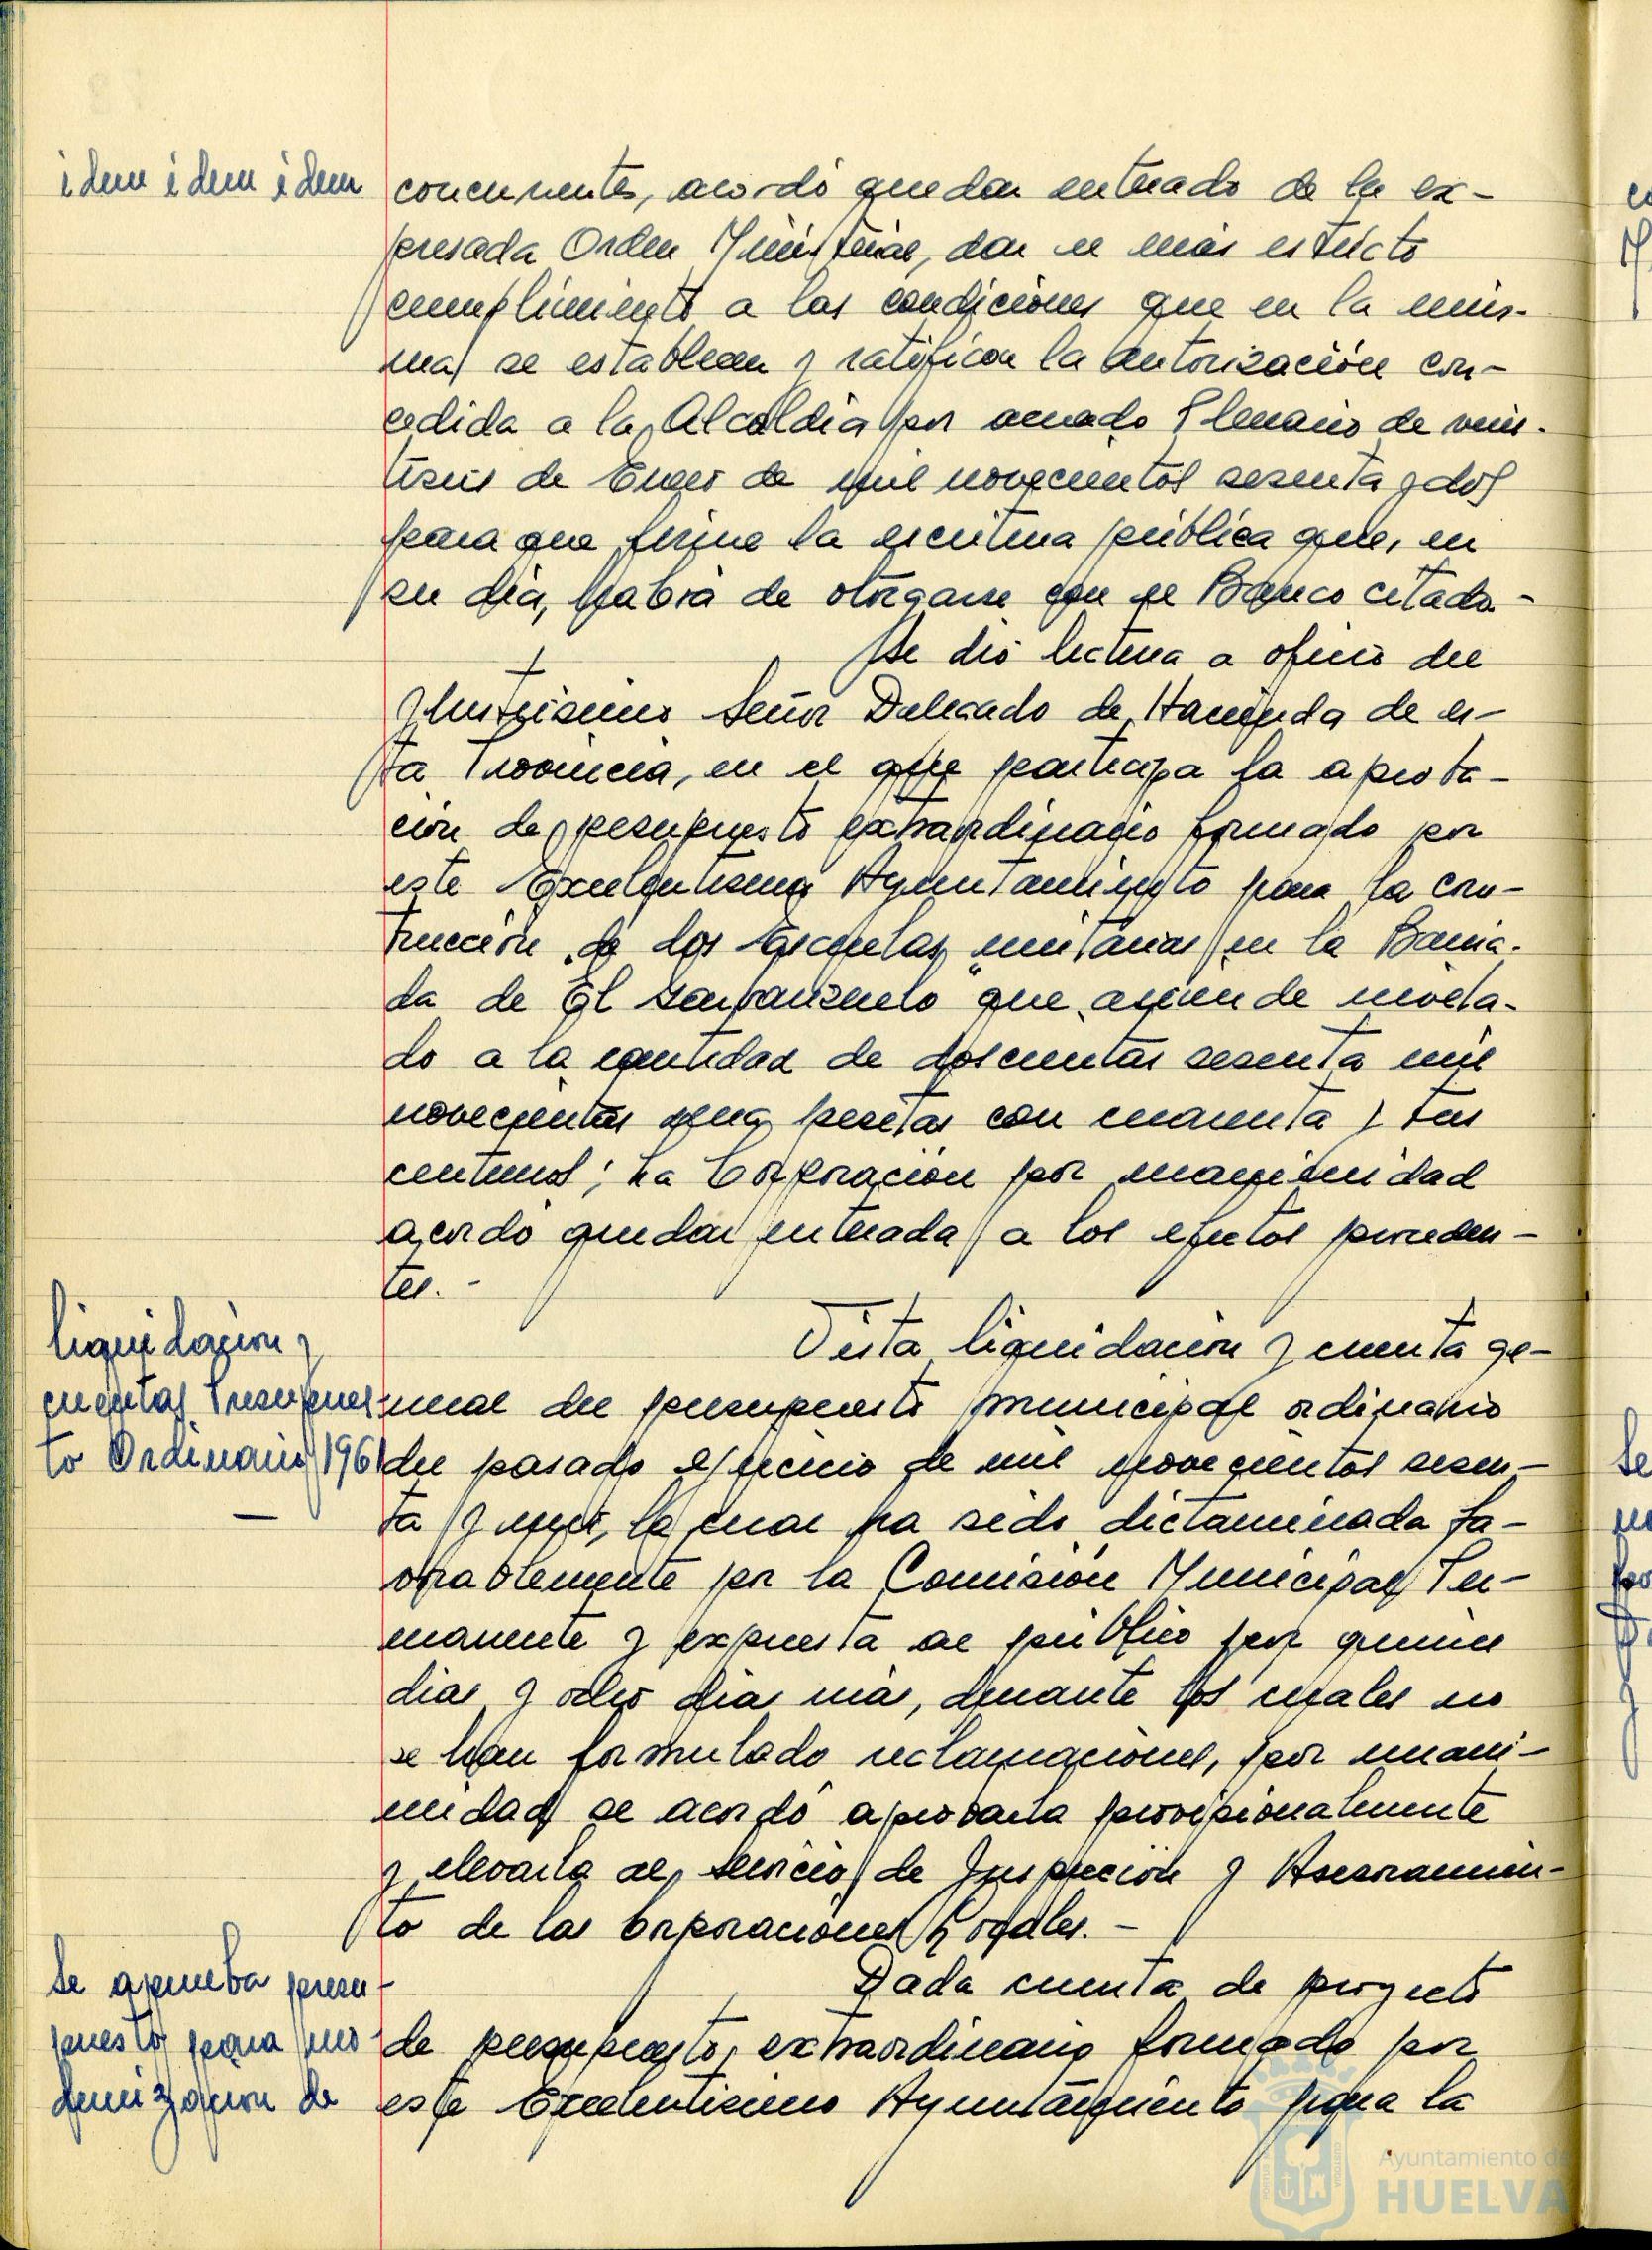 idem idem idem
concurrentes, acordó quedar enterado de la ex-
presada Orden Ministerial, dar el más estricto
cumplimiento a las condiciones que en la mis-
ma se establecen y ratificar la autorización con-
cedida a la Alcaldía por acuerdo Plenario de vein-
tiseis de Enero de mil novecientos sesenta y dos
para que firme la escritura pública que, en
su día, habrá de otorgarse con el Banco citado.-
Se dió lectura a oficio del
Ilustrisimo Señor Delegado de Hacienda de es-
ta Provincia, en el que participa la aproba-
ción de presupuesto extraordinario formado por
este Excelentisimo Ayuntamiento para la cons-
trucción de dos Escuelas unitarias en la Barria-
da de "El Garbanzuelo" que asciende nivela-
do a la cantidad de doscientas sesenta mil
novecientas una pesetas con cuarenta y tres
centimos; La Corporación por unanimidad
acordó quedar enterada a los efectos proceden-
tes.-
liquidación y
cuentas Presupues-
to Ordinario 1961
Vista liquidación y cuenta ge-
neral del presupuesto municipal ordinario
del pasado ejercicio de mil novecientos sesen-
ta y uno, la cual ha sido dictaminada fa-
vorablemente por la Comisión Municipal Per-
manente y expuesta al público por quince
dias y ocho dias más, durante los cuales no
se han formulado reclamaciones, por unani-
midad se acordó aprobarla provisionalmente
y elevarla al Servicio de Inspección y Asesoramien-
to de las Corporaciones Locales.-
Se aprueba presu-
puesto para mo-
dernización de
Dada cuenta de proyecto
de presupuesto extraordinario formado por
este Excelentisimo Ayuntamiento para la
Ayuntamiento de
HUELVA